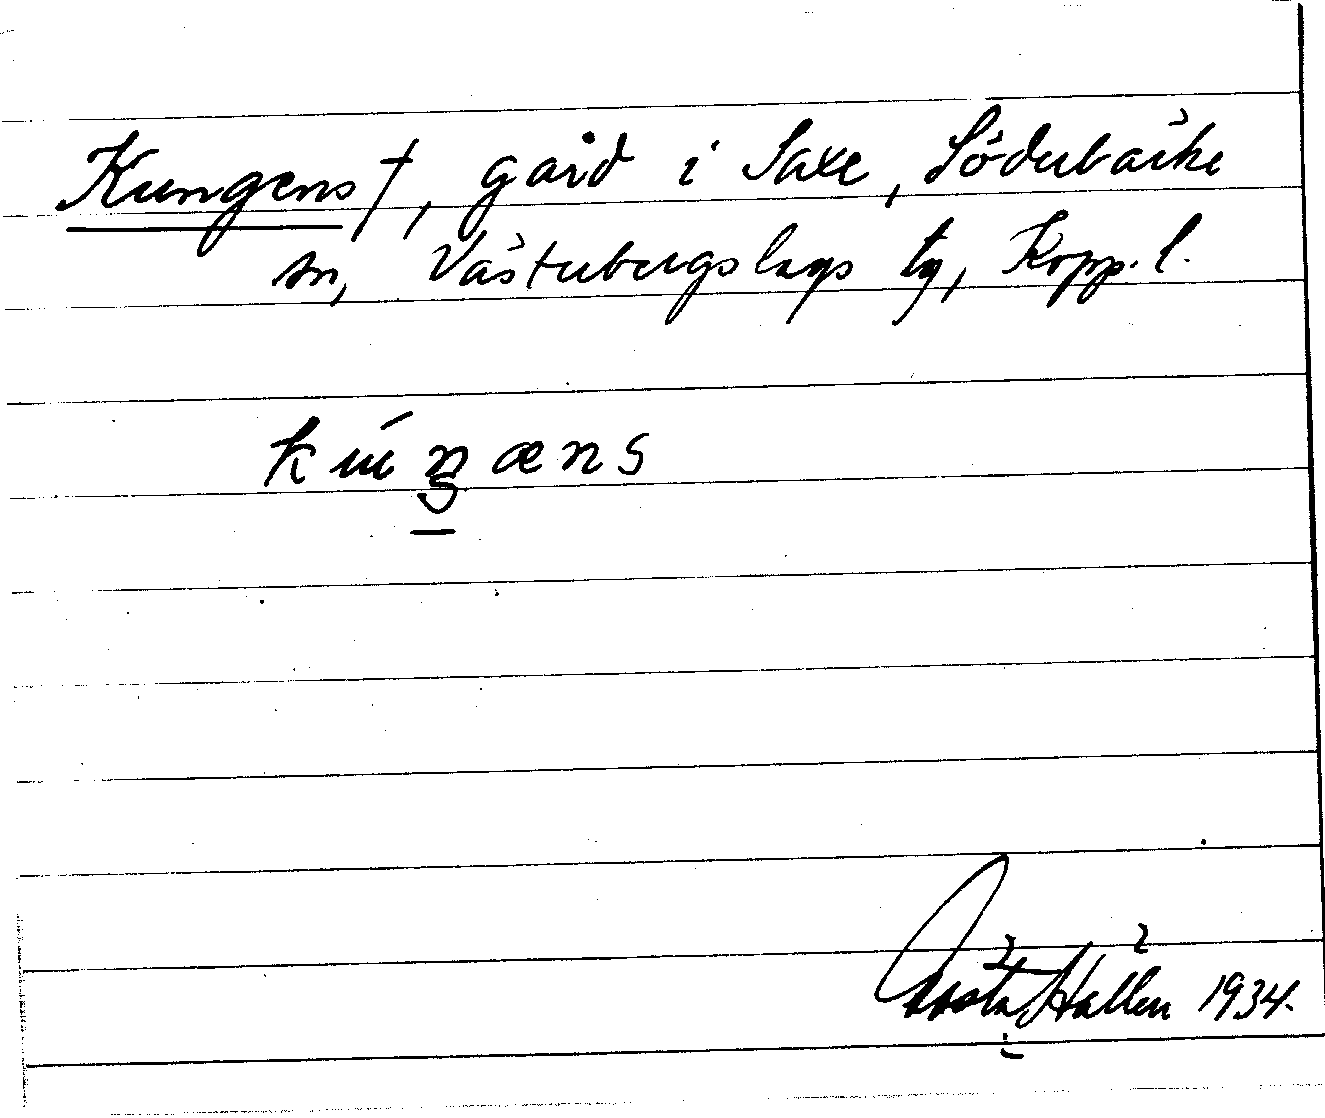 Kungens †, gård i Saxe, Söderbärke
sn, Västerbergslags tg, Kopp. l.
kúŋæns
Gösta Hallén 1934.